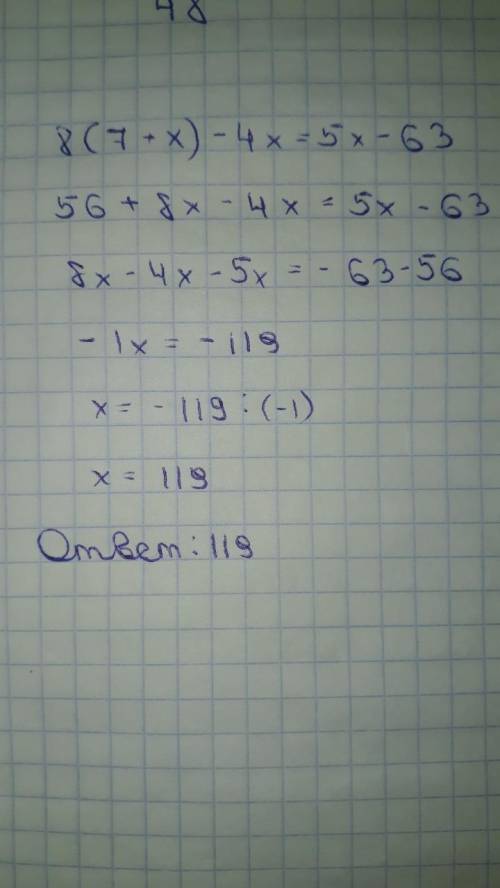 48
8(7+x)-4x=5x-63
56+8x-4x=5x-63
8x-4x-5x=-63-56
-1x=-119
x=-119:(-1)
x=119
Ответ:119